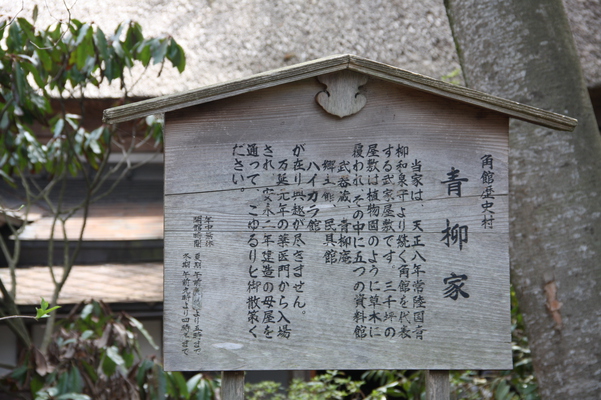 角館歴史村
青柳家
当家は、天正八年常陸国青
柳和泉守より続く角館を代表
する武家屋敷です。三千坪の
屋敷は植物園のように草木に
覆われ、その中に五つの資料館
武器蔵、青柳庵
郷土館、民具館
ハイカラ館
が在り興趣が尽きません。
万延元年の薬医門から入場
され、安永二年建造の母屋を
通って、ごゆるりと御散策く
ださい。
年中無休
開館時間 夏期 午前九時より五時まで
冬期 午前九時より四時半まで